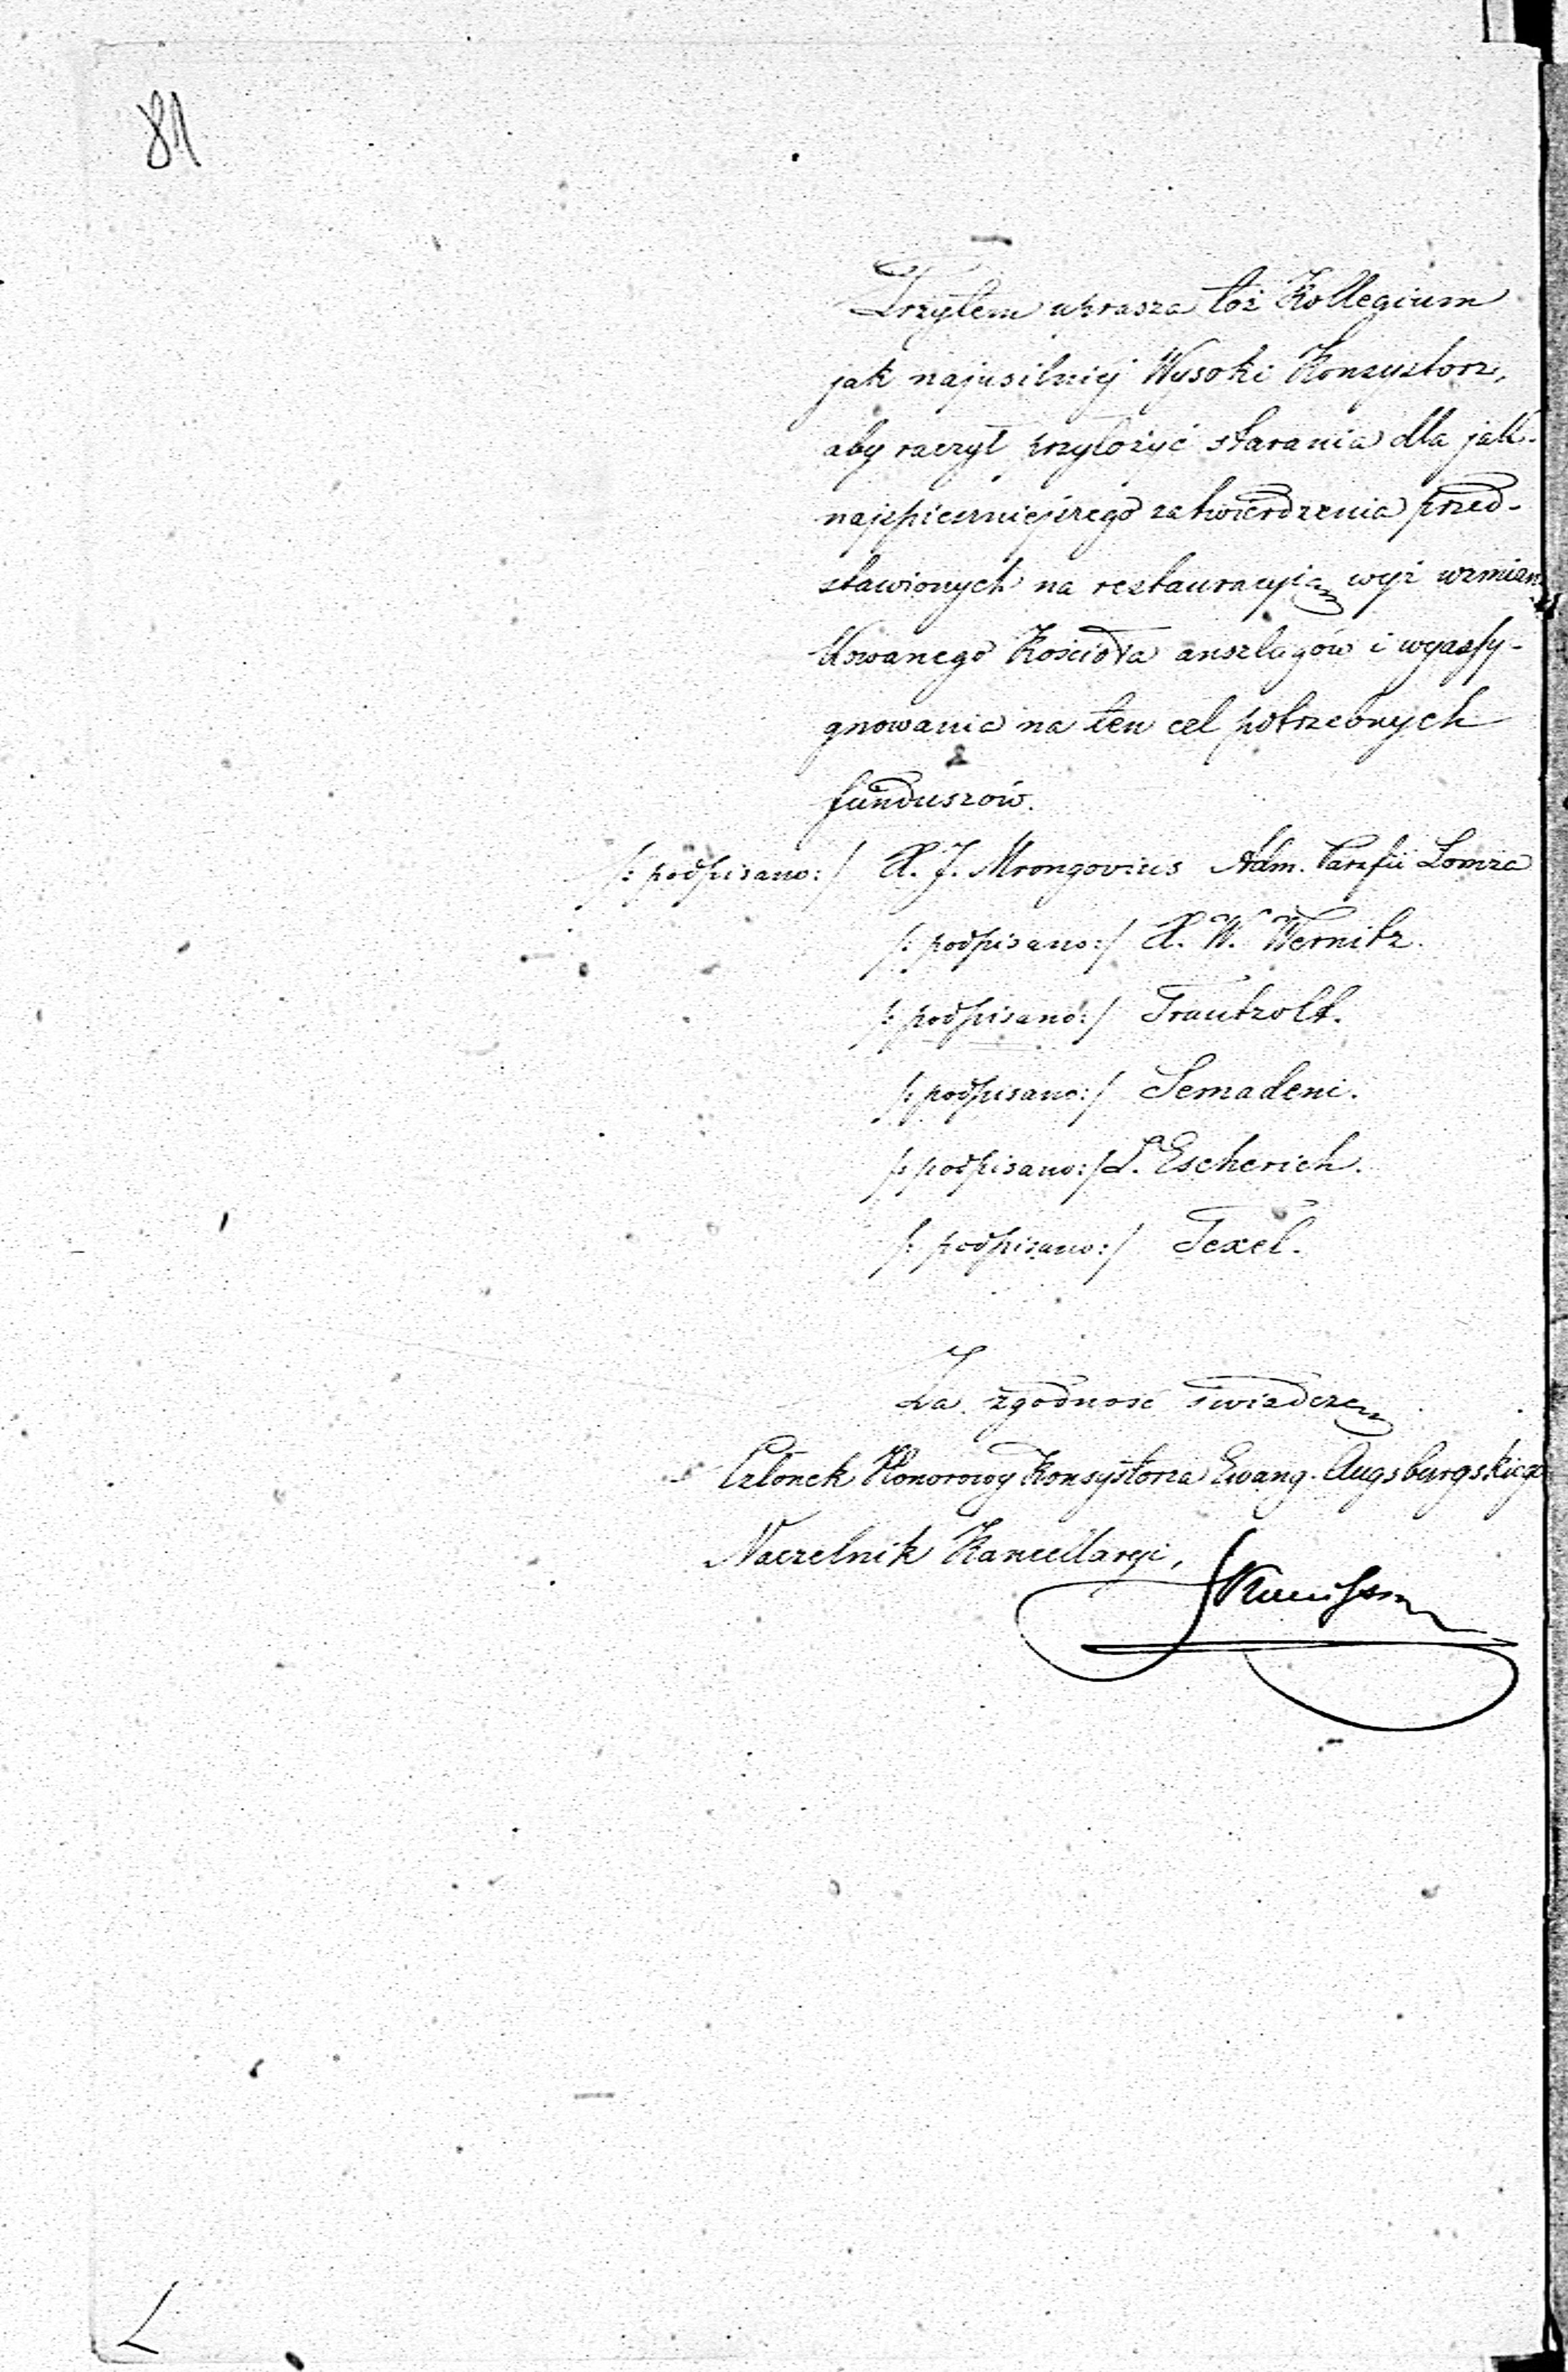 81
Przytem uprasza toż Kollegium
jak najusilniej Wysoki Konsystorz,
aby raczył przyłożyć starania dla jak-
najspieszniejszego zatwierdzenia przed-
stawionych na restauracyią wyż wzmian-
kowanego Kościoła anszlagów i wyassy-
gnowania na ten cel potrzebnych
funduszów.
/: podpisano: / X. J. Mrongovius Adm. Parafii Łomża
/: podpisano: / X. W. Wernitz.
/: podpisano: / Trautzolt.
/: podpisano: / Semadeni.
/: podpisano: / L. Escherich.
/: podpisano: / Texel.
Za zgodność świadczę
Członek Honorowy Konsystorza Ewang. Augsburgskiego
Naczelnik Kancellaryi,